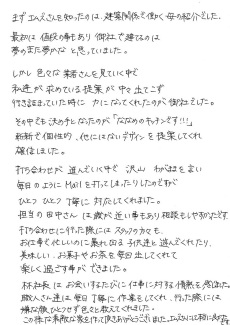 まずエムズさんを知ったのは、建築関係で働く母の紹介でした。
最初は値段の事もあり御社で建てるのは
夢のまた夢かな と思っていました。
しかし色々な業者さんを見ていく中で
私達が求めている提案が中々出てこず
行き詰まっていた時に力になってくれたのが御社でした。
その中でも決め手となったのが「ななめのキッチンです!!!」
斬新で個性的、他にはないデザインを提案してくれ
確信しました。
打ち合わせが進んでいく中で 沢山 わがままを言い
毎日のようにMailを打ってしまったりしたのですが
ひとつひとつ丁寧に対応してくれました。
担当の田中さんは歳が近い事もあり相談もしやすかったです。
打ち合わせに行った際にはスタッフの方々も、
お仕事で忙しいのに暴れ回る子供達と遊んでくれたり、
美味しいお菓子やお茶を毎回出してくれて
楽しく過ごす事ができました。
林社長はお会いするたびに仕事に対する情熱を感じました。
職人さん達は毎日丁寧に作業をしてくれ、行った際には
嫌な顔ひとつせず色々と教えてくれました。
この様な素敵な家を作って頂きありがとうございました。エムズさんに頼んで良かった
です